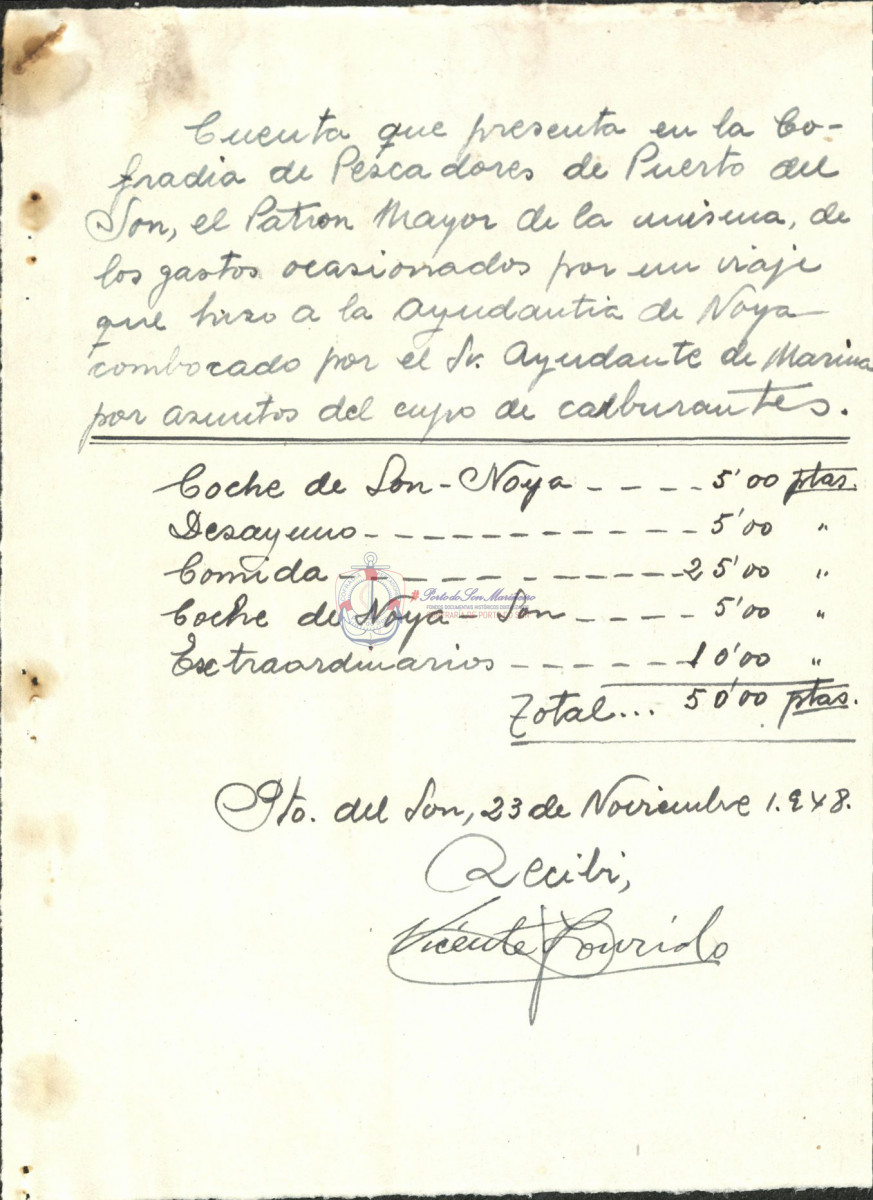 Cuenta que presenta en la Co-
fradia de Pescadores de Puerto del
Son, el Patron Mayor de la misma, de
los gastos ocasionados por un viaje
que hizo a la Ayudantia de Noya
combocado por el Sr. Ayudante de Marina
por asuntos del cupo de carburantes.
Coche de Son - Noya - - - - 5'00 ptas.
Desayuno - - - - - - - - - - - - 5'00 "
Comida - - - - - - - - - - - - 25'00 "
#PortodeSonMariñeiro
Coche de Noya - Son - - - - - 5'00 "
Extraordinarios - - - - - - - 10'00 "
Total... 50'00 ptas.
Pto. del Son, 23 de Noviembre 1.948.
Recibi,
Vicente Lourido